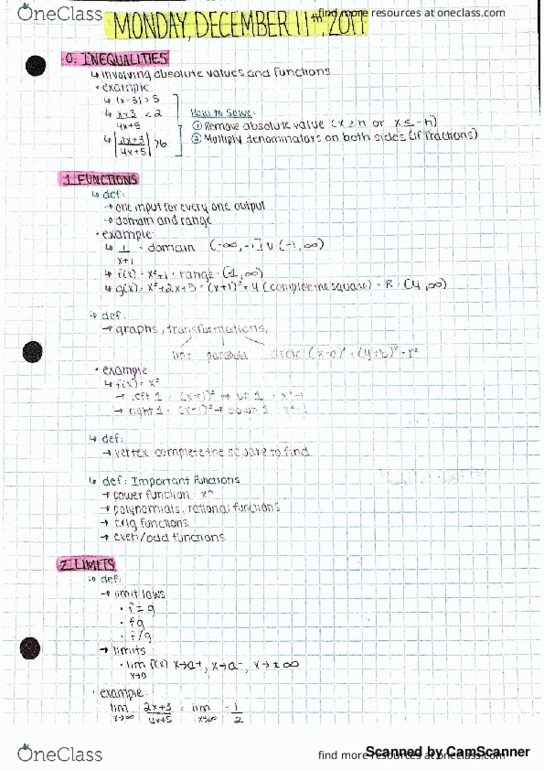 OneClass
find more resources at oneclass.com
MONDAY, DECEMBER 11th, 2017
0. INEQUALITIES
↳ involving absolute values and functions
• example
↳ |x-3| > 5
↳ x+3 < 2
4x+5
↳ |2x+3| >6
|4x+5|
How to Solve:
① Remove absolute value (x ≥ n or x ≤ -n)
② Multiply denominators on both sides (if fractions)
1. FUNCTIONS
↳ def:
→ one input for every one output
→ domain and range
• example:
↳ 1 • domain (-∞, -1] ∪ (-1, ∞)
x+1
↳ f(x) = x²+1 • range • (1, ∞)
↳ g(x) = x²+2x+5 = (x+1)²+4 (complete the square) = R • (4, ∞)
↳ def:
→ graphs, transformations,
line parabola circle (x-a)² + (y+b)² = r²
• example
↳ f(x) = x²
→ left 1 = (x+1)² → up 1 = x²+1
→ right 1 = (x-1)² → down 1 x²-1
↳ def:
→ vertex complete the square to find
↳ def: Important functions
→ power function • xⁿ
→ polynomials, rational functions
→ trig functions
→ even/odd functions
2. LIMITS
↳ def:
→ limit laws
• f ± g
• fg
• f/g
→ limits
• lim f(x) x→a+, x→a-, x→±∞
x→a
• example
lim 2x+3 = lim -1
x→∞ 4x+5 x→∞ 2
OneClass
find more resources at oneclass.com
Scanned by CamScanner